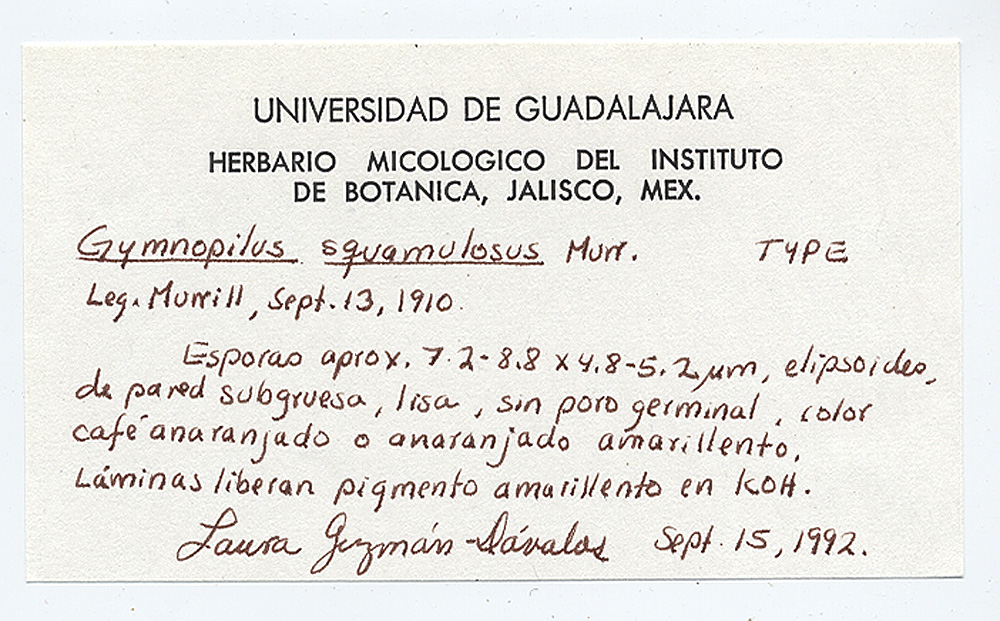 UNIVERSIDAD DE GUADALAJARA
HERBARIO MICOLOGICO DEL INSTITUTO
DE BOTANICA, JALISCO, MEX.
Gymnopilus squamulosus Murr. TYPE
Leg. Murrill, Sept. 13, 1910.
Esporas aprox. 7.2-8.8 x 4.8-5.2 µm, elipsoides,
de pared subgruesa, lisa, sin poro germinal, color
café anaranjado o anaranjado amarillento.
Láminas liberan pigmento amarillento en KOH.
Laura Guzmán-Dávalos Sept. 15, 1992.